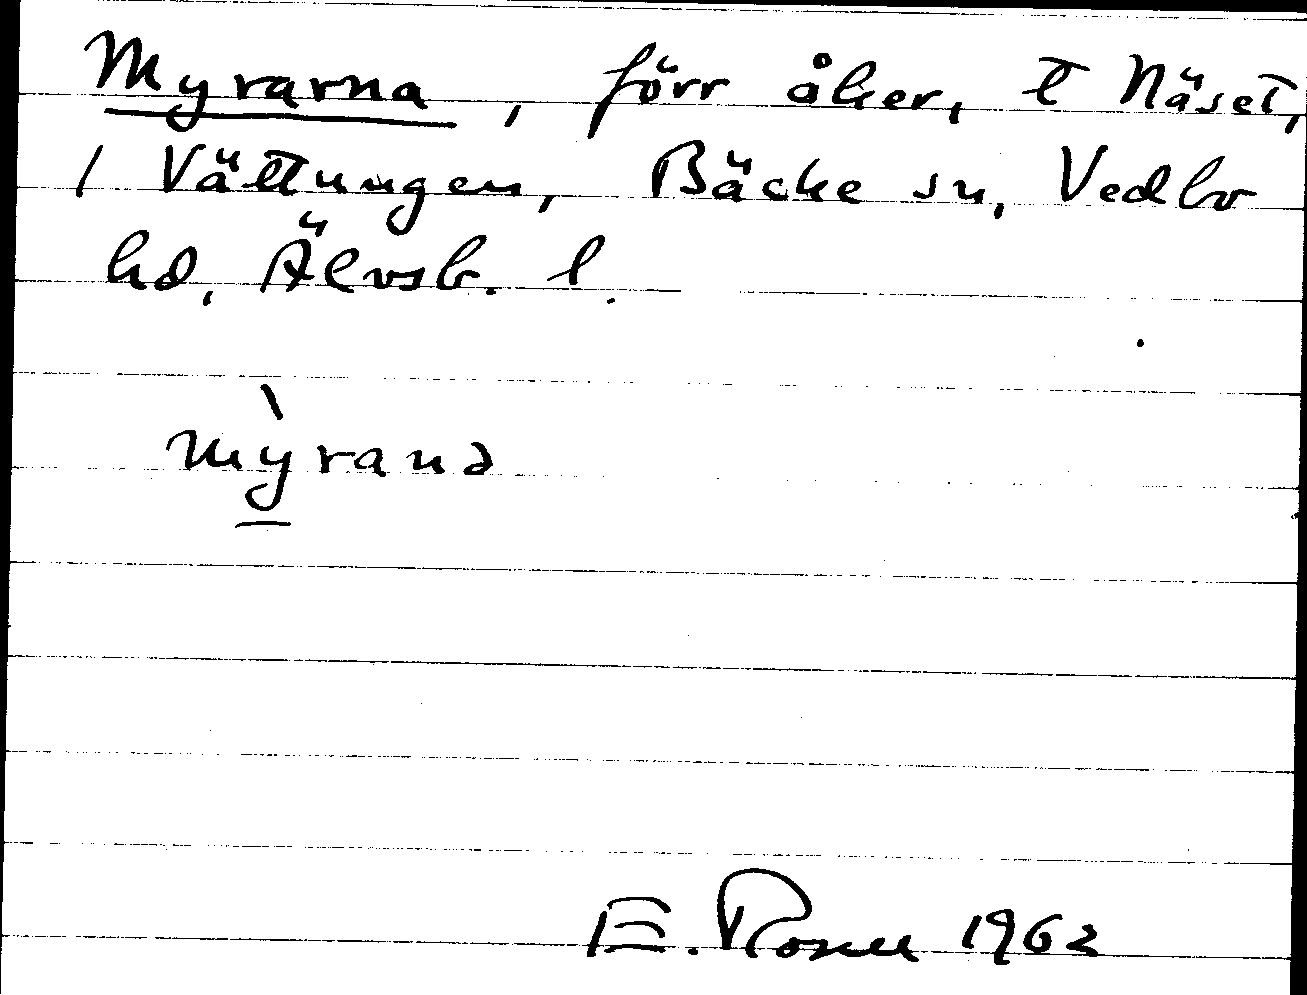 Myrarna, förr åker, t Näset,
/ Vättungen, Bäcke sn, Vedbo
hd, Älvsb. l.
mỳranə
E. Rosell 1962